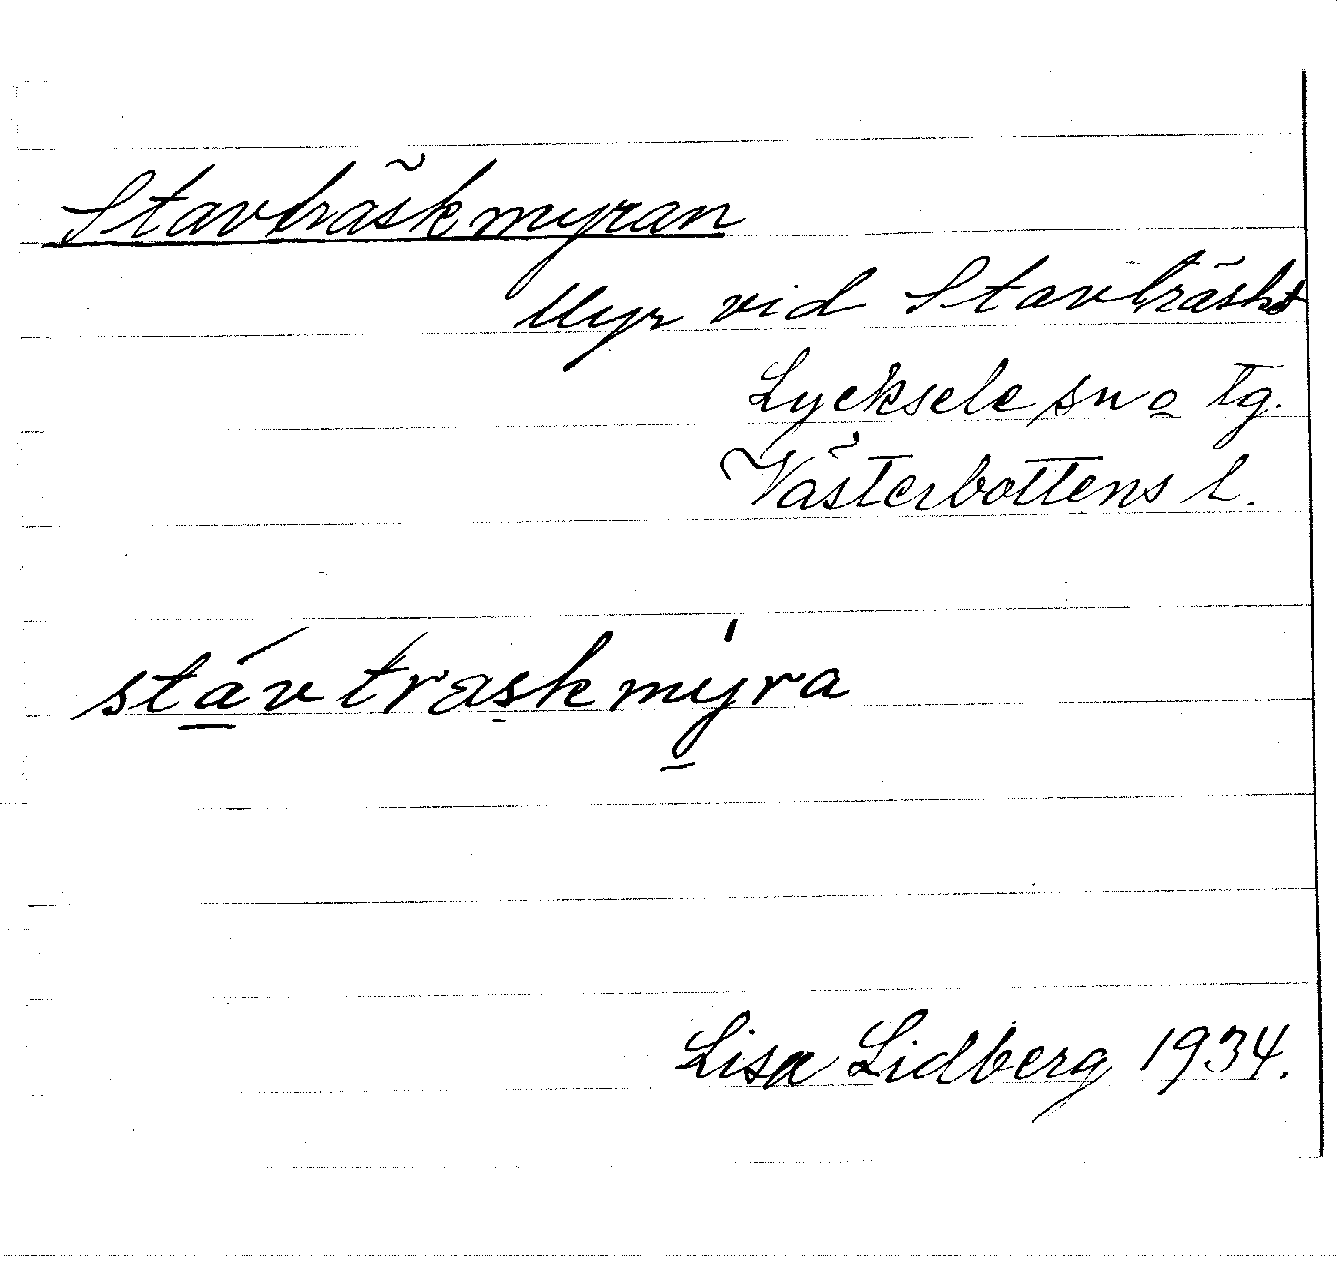 Stavträskmyran
Myr vid Stavträsket
Lycksele sn o tg.
Västerbottens l.
stávtraskmýra
Lisa Lidberg 1934.